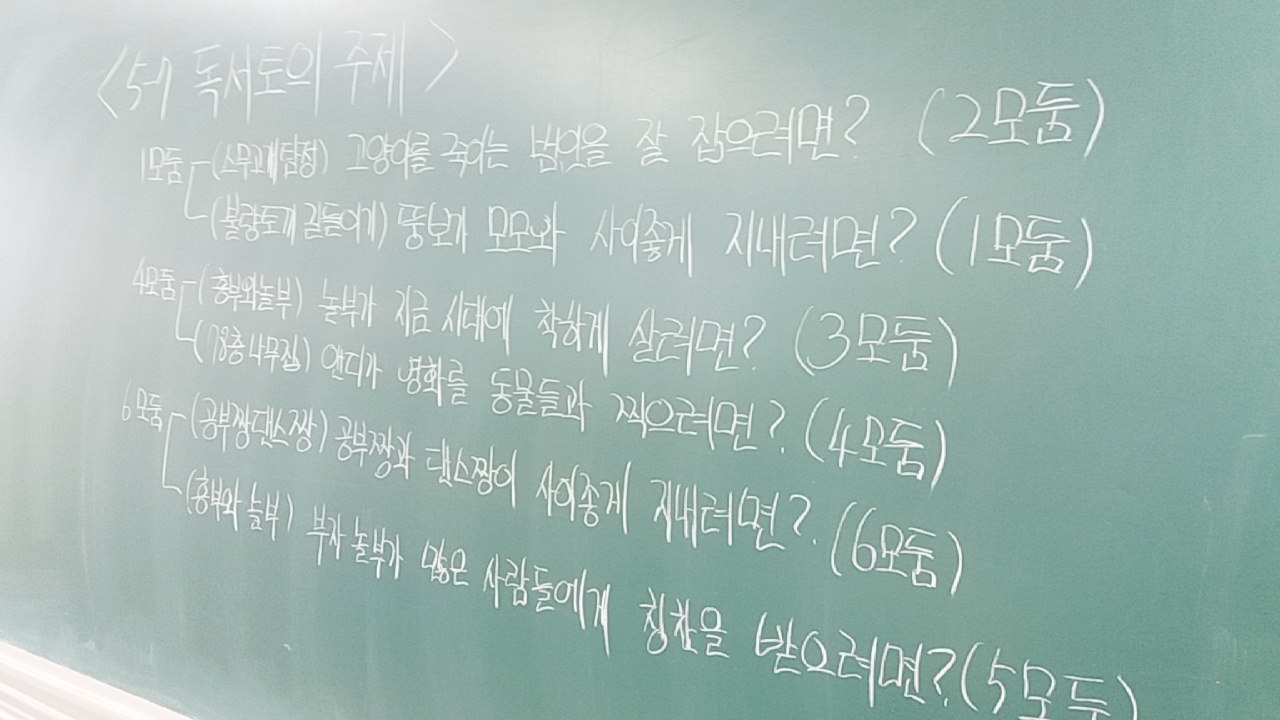 <5-7 독서토의 주제>
1모둠 - (스무고개탐정) 고양이를 죽이는 범인을 잘 잡으려면? (2모둠)
(불량토끼 길들이기) 뚱보가 모모와 사이좋게 지내려면? (1모둠)
4모둠 - (흥부와놀부) 놀부가 지금 시대에 착하게 살려면? (3모둠)
(78층 나무집) 앤디가 영화를 동물들과 찍으려면? (4모둠)
6모둠 - (공부짱댄스짱) 공부짱과 댄스짱이 사이좋게 지내려면? (6모둠)
(흥부와 놀부) 부자 놀부가 많은 사람들에게 칭찬을 받으려면? (5모둠)